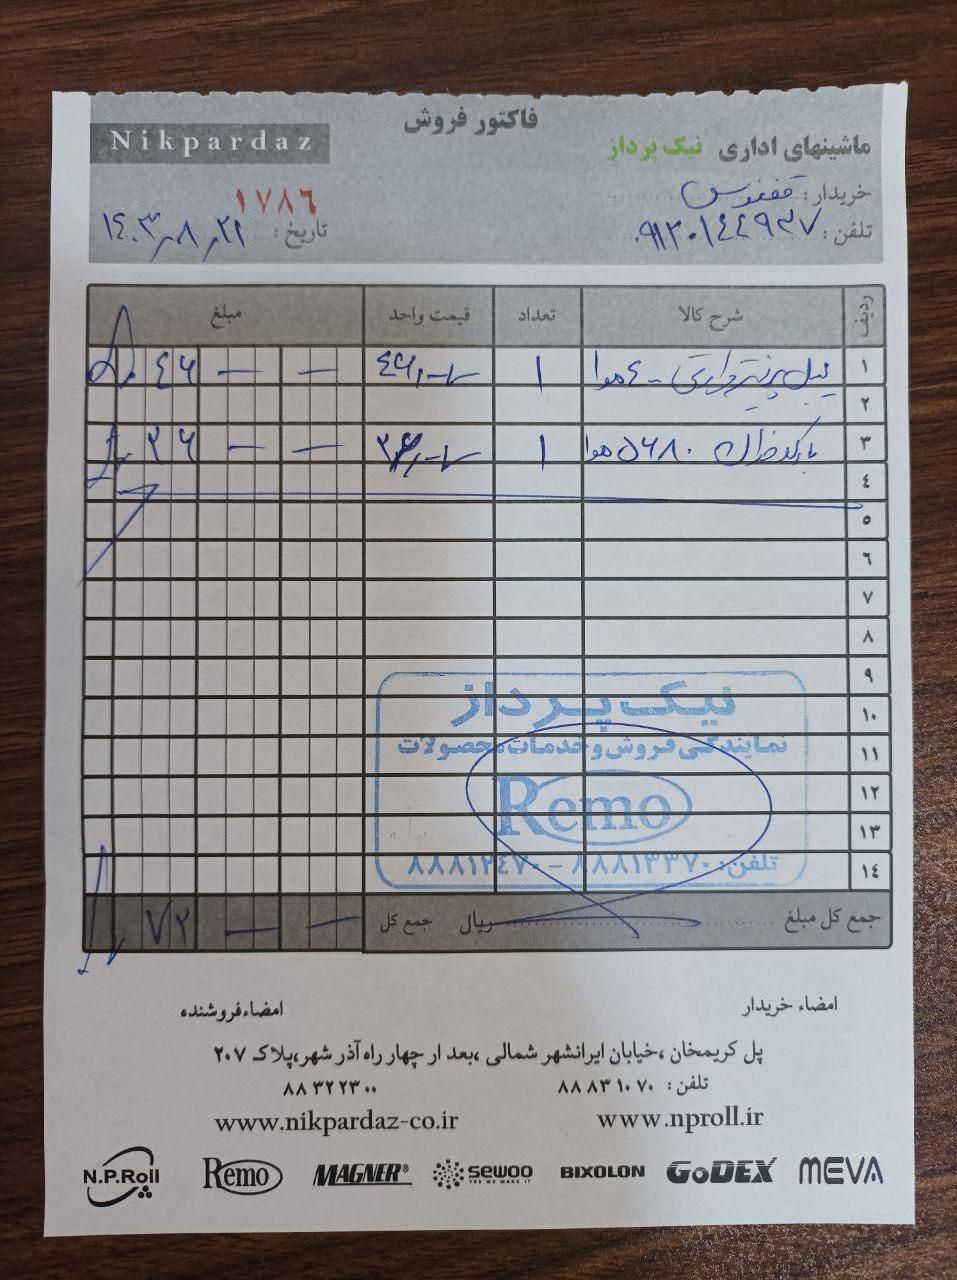 فاکتور فروش
Nikpardaz
ماشینهای اداری نیک پرداز
خریدار: ققنوس
۱۷۸۶
تلفن: ۰۹۱۲۰۱۴۴۹۳۷
تاریخ: ۱۴۰۳/۸/۲۱
ردیف شرح کالا تعداد قیمت واحد مبلغ
۱ لیبل پرینتر حرارتی ۴۰۰ هوا ۱ ۴۶ — —
۲
۳ بارکدخوان ۵۶۸۰ هوا ۱ ۲۶ — —
۴
۵
۶
۷
۸
۹
۱۰
۱۱
۱۲
۱۳
۱۴
نیک پرداز
نمایندگی فروش و خدمات محصولات
Remo
تلفن: ۸۸۸۱۳۳۷۰ - ۸۸۸۱۲۴۷۰
جمع کل مبلغ ریال جمع کل ۷۲ — —
امضاء خریدار امضاءفروشنده
پل کریمخان ،خیابان ایرانشهر شمالی ،بعد از چهار راه آذر شهر،پلاک ۲۰۷
تلفن: ۸۸ ۸۳ ۱۰ ۷۰ ۸۸ ۳۲ ۲۳ ۰۰
www.nikpardaz-co.ir www.nproll.ir
N.P.Roll Remo MAGNER® SEWOO YES WE MAKE IT BIXOLON GoDEX MEVA